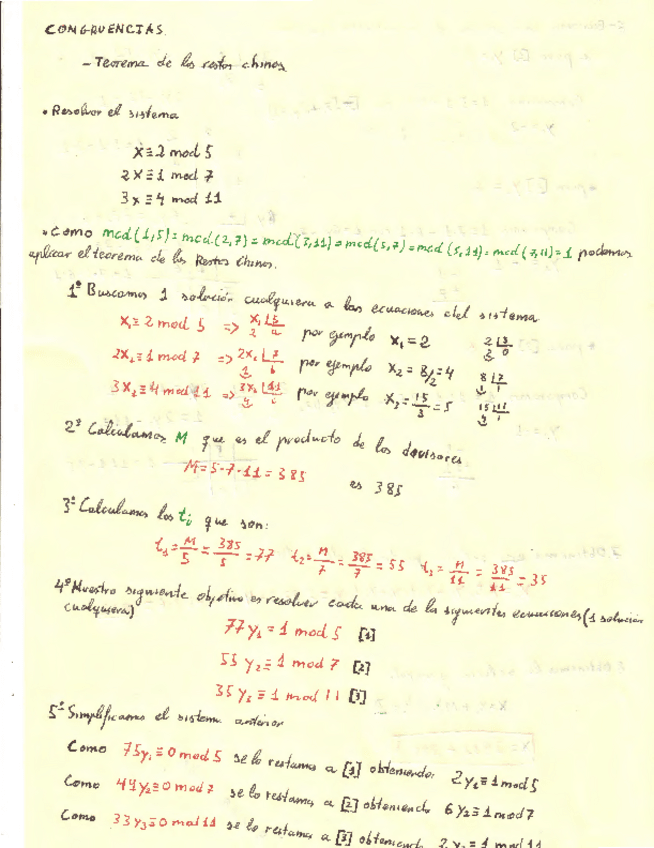 CONGRUENCIAS.
- Teorema de los restos chinos
• Resolver el sistema
X ≡ 2 mod 5
2X ≡ 1 mod 7
3x ≡ 4 mod 11
• Como mcd(1,5) = mcd(2,7) = mcd(3,11) = mcd(5,7) = mcd(5,11) = mcd(7,11) = 1 podemos
aplicar el teorema de los Restos Chinos.
1º Buscamos 1 solución cualquiera a las ecuaciones del sistema
X₁ ≡ 2 mod 5 => X₁ 5 por ejemplo X₁ = 2
2X₂ ≡ 1 mod 7 => 2X₂ 7 por ejemplo X₂ = 8/2 = 4 8 7
3X₃ ≡ 4 mod 11 => 3X₃ 11 por ejemplo X₃ = 15/3 = 5 15 11
2º Calculamos M que es el producto de los divisores
M = 5·7·11 = 385 es 385
3º Calculamos los tᵢ que son:
t₁ = M/5 = 385/5 = 77 t₂ = M/7 = 385/7 = 55 t₃ = M/11 = 385/11 = 35
4º Nuestro siguiente objetivo es resolver cada una de la siguientes ecuaciones (1 solución
cualquiera)
77y₁ = 1 mod 5 [1]
55 y₂ ≡ 1 mod 7 [2]
35 y₃ ≡ 1 mod 11 [3]
5º Simplificamos el sistema anterior
Como 75y₁ ≡ 0 mod 5 se lo restamos a [1] obteniendo: 2y₁ ≡ 1 mod 5
Como 49y₂ ≡ 0 mod 7 se lo restamos a [2] obteniendo 6y₂ ≡ 1 mod 7
Como 33y₃ ≡ 0 mod 11 se lo restamos a [3] obteniendo 2y₃ ≡ 1 mod 11